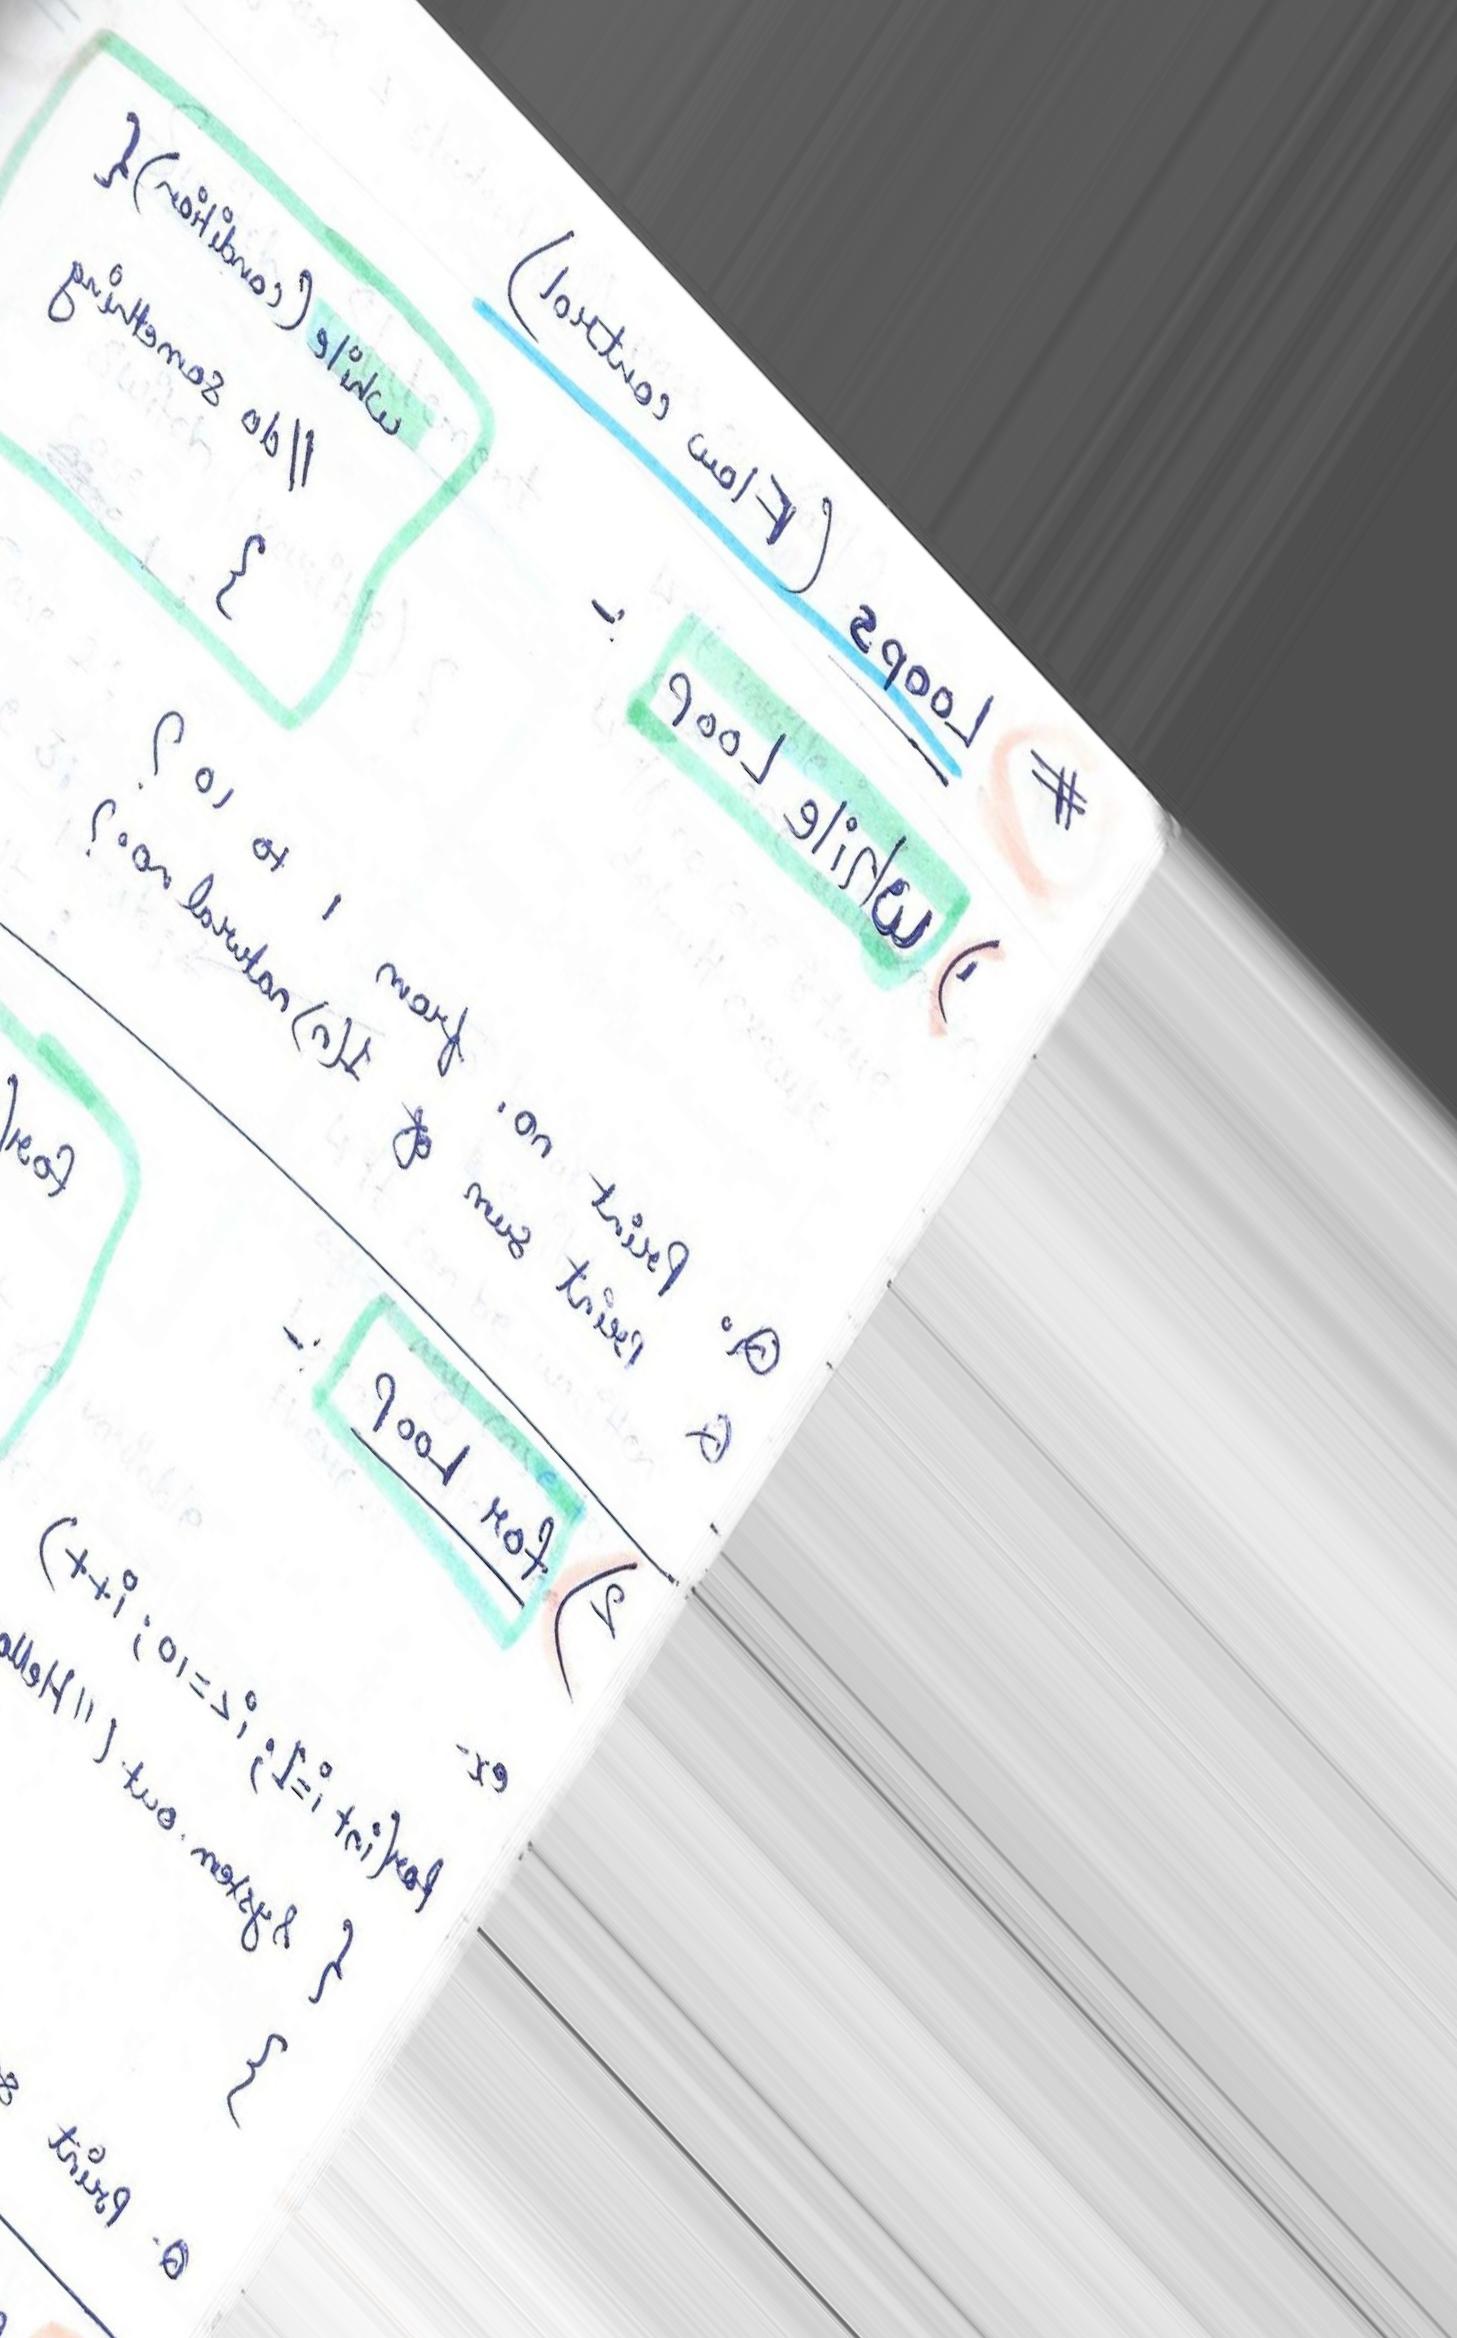 # Loops (Flow control)
1) While Loop :-
while (condition) {
// do something
}
Q. Print no. from 1 to 10 ?
Q print sum of 1st (n) natural no.?
2) for Loop :-
for(
ex-
for(int i=1; i<=10; i++)
{ System.out. ("Hello
}
Q. Print